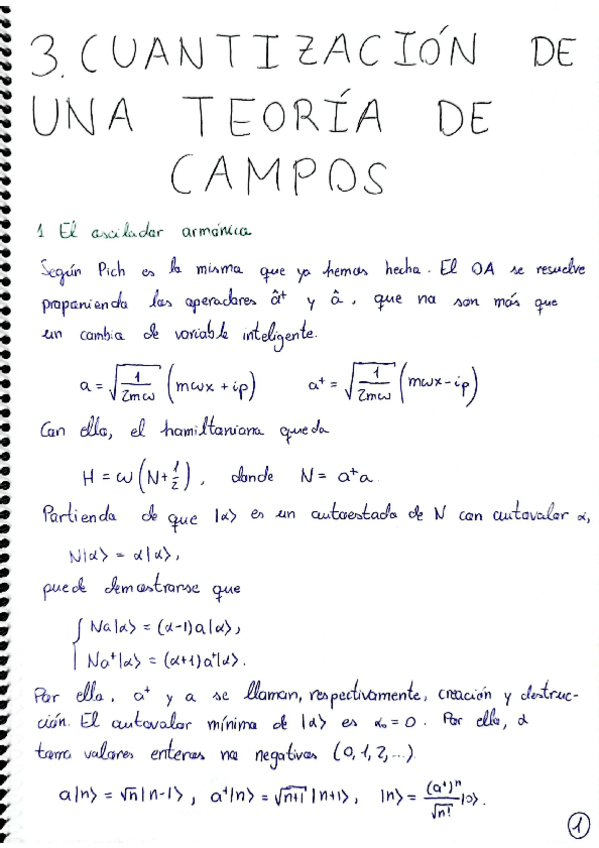 3. CUANTIZACIÓN DE
UNA TEORÍA DE
CAMPOS
1 El oscilador armónico
Según Pich es lo mismo que ya hemos hecho. El OA se resuelve
proponiendo los operadores â⁺ y â, que no son más que
un cambio de variable inteligente.
a = √(1/2mω) (mωx + ip) a⁺ = √(1/2mω) (mωx - ip)
Con ello, el hamiltoniano queda
H = ω(N + 1/2), donde N = a⁺a.
Partiendo de que |α> es un autoestado de N con autovalor α,
N|α> = α|α>,
puede demostrarse que
{ Na|α> = (α-1)a|α>,
Na⁺|α> = (α+1)a⁺|α>.
Por ello, a⁺ y a se llaman, respectivamente, creación y destruc-
ción. El autovalor mínimo de |α> es α₀ = 0. Por ello, α
toma valores enteros no negativos (0, 1, 2, ...).
a|n> = √n |n-1>, a⁺|n> = √(n+1) |n+1>, |n> = (a⁺)ⁿ/√n! |0>.
1